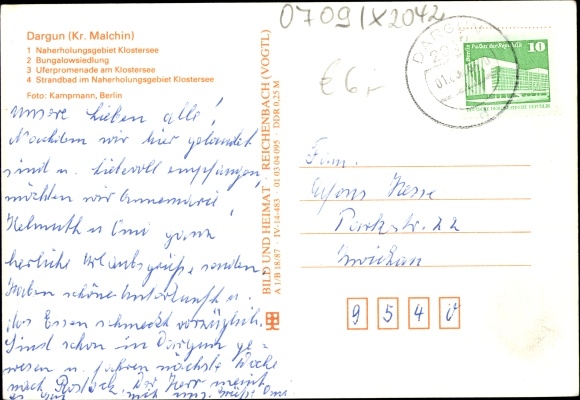 07091X2042
Dargun (Kr. Malchin)
1 Naherholungsgebiet Klostersee
2 Bungalowsiedlung
3 Uferpromenade am Klostersee
4 Strandbad im Naherholungsgebiet Klostersee
Foto: Kampmann, Berlin
€ 6,-
DARGUN
Berlin Palast der Republik 10
DEUTSCHE DEMOKRATISCHE REPUBLIK
Unsere Lieben alle!
Nachdem wir hier gelandet
sind u. liebevoll empfangen,
möchten wir Annemarie
Helmuth u. Omi ganz
herzliche Urlaubsgrüße senden!
Haben schöne Unterkunft u.
das Essen schmeckt vorzüglich.
Sind schon in Dargun ge-
wesen u. fahren nächste Woche
nach Rostock. Der Herr meint
es gut mit uns. Grüße Omi
BILD UND HEIMAT · REICHENBACH (VOGTL)
A 1/B 18/87 · IV-14-483 01 03 04 095 DDR 0,25 M
Fam.
Alfons Hesse
Parkstr. 22
Zwickau
9 5 4 0